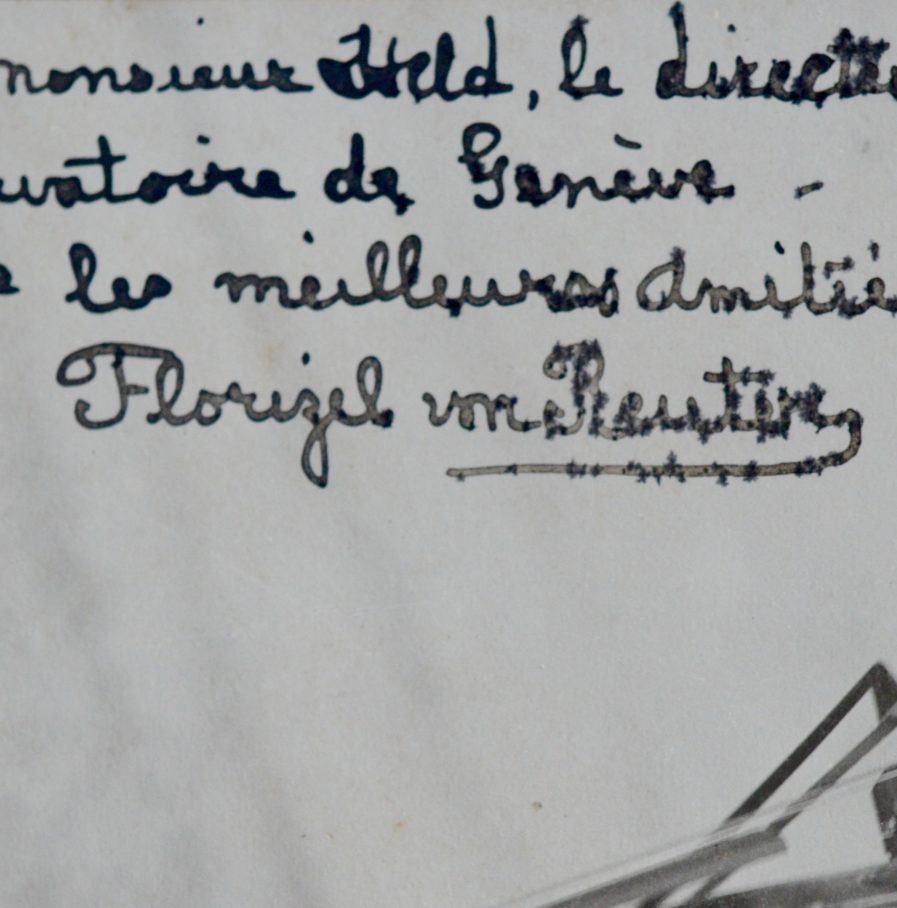 monsieur Held, le directe
rvatoire de Genève -
les meilleures amitié
Florizel von Reuter